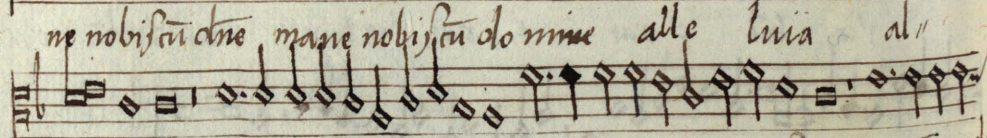 ne nobiſcū dn̄e mane nobiſcū do mine alle luia al